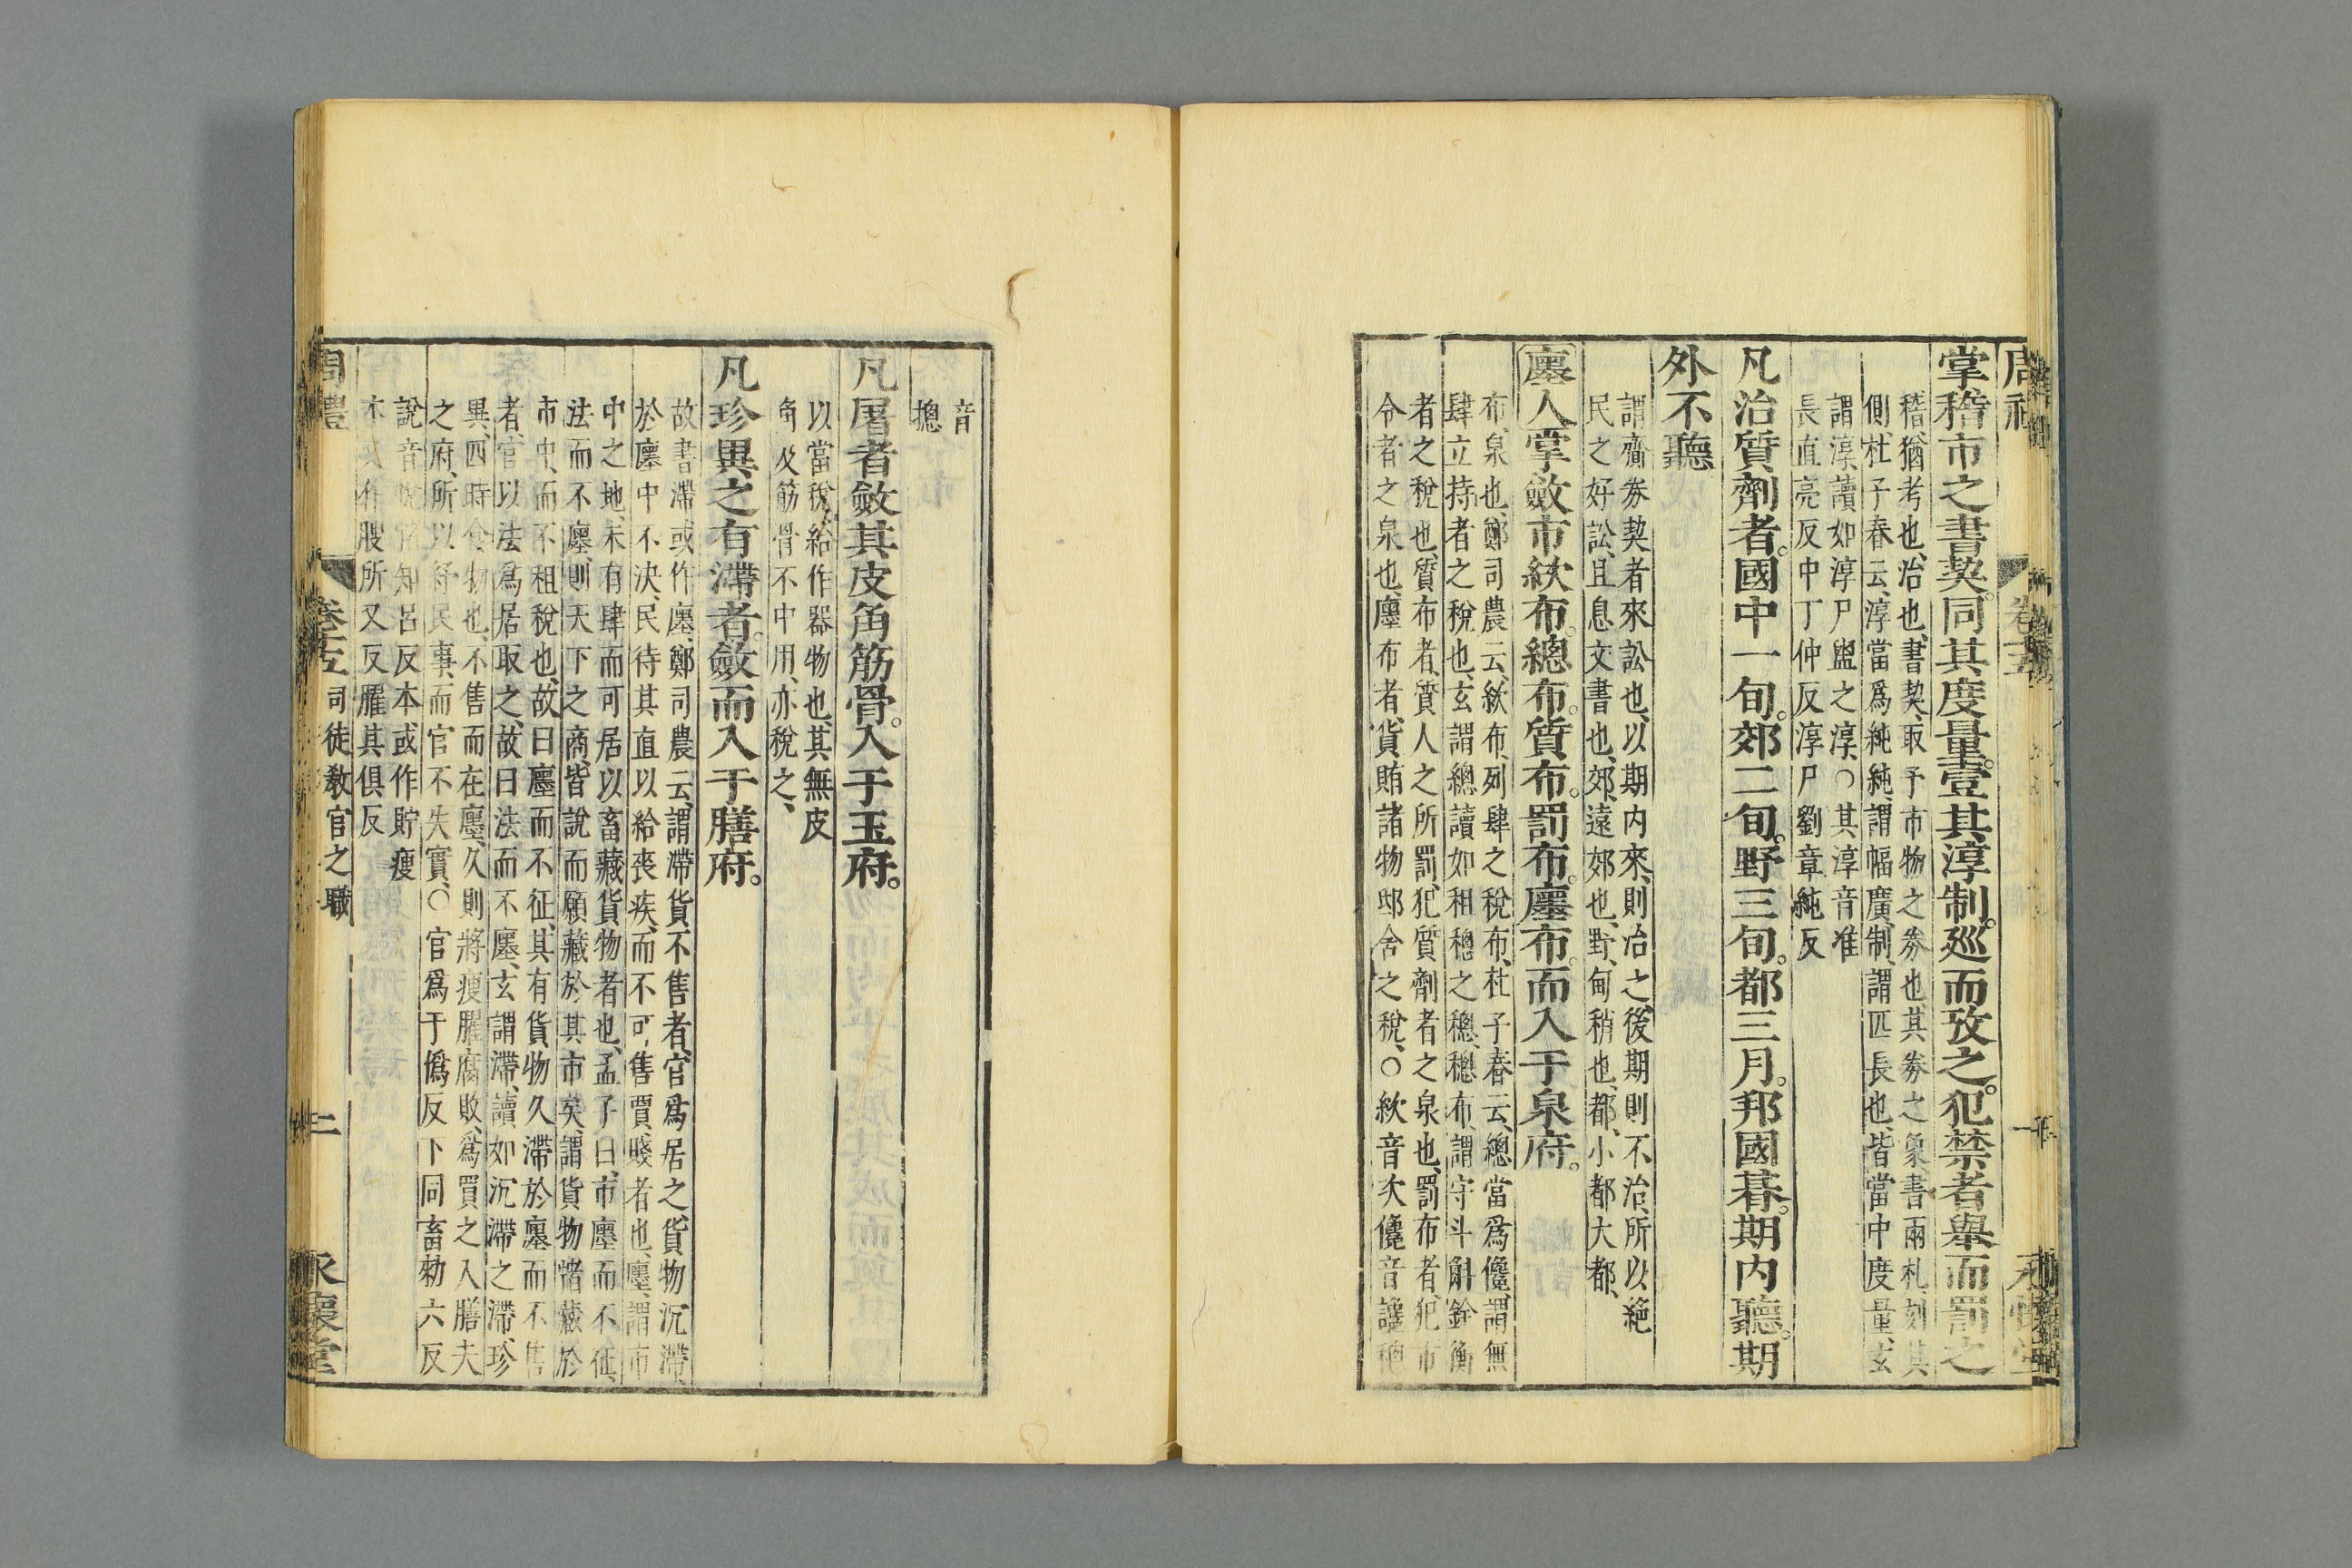 掌稽市之書契。同其度量。壹其淳制。巡而攷之。犯禁者舉而罰之
稽猶考也、治也、書契、取予市物之券也、其券之象、書兩札、刻其
側杜子春云、淳當爲純、純謂幅廣、制謂匹長也、皆當中度量、玄
謂淳、讀如淳尸盥之淳、○其淳音准
長直亮反中丁仲反淳尸劉章純反
凡治質劑者。國中一旬。郊二旬。野三旬。都三月。邦國朞。期內聽。期
外不聽
謂齎券契者來訟也、以期內來、則治之、後期則不治、所以絕
民之好訟、且息文書也、郊、遠郊也、野、甸稍也、都、小都大都、
廛人掌斂市絘布。總布。質布。罰布。廛布。而入于泉府。
布、泉也、鄭司農云、絘布、列肆之稅布、杜子春云、總當爲儳、謂無
肆立持者之稅也、玄謂總讀如租穗之穗、穗布、謂守斗斛銓衡
者之稅也、質布者、質人之所罰、犯質劑者之泉也、罰布者、犯市
令者之泉也、廛布者、貨賄諸物邸舍之稅、○絘音次儳音讒
音
摠
凡屠者斂其皮角筋骨。入于玉府。
以當稅、給作器物也、其無皮
角及筋骨不中用、亦稅之、
凡珍異之有滯者。斂而入于膳府。
故書滯或作廛、鄭司農云、謂滯貨不售者、官爲居之、貨物沉滯、
於廛中不決、民待其直以給喪疾、而不可售賈賤者也、廛、謂市
中之地、未有肆而可居以畜藏貨物者也、孟子曰、市廛而不征、
法而不廛、則天下之商、皆說而願藏於其市矣、謂貨物䐗藏於
市中、而不租稅也、故曰廛而不征、其有貨物久滯於廛而不售
者、官以法爲居取之、故曰法而不廛、玄謂滯、讀如沉滯之滯、珍
異、四時食物也、不售而在廛、久則將瘦臞腐敗、爲買之入膳夫
之府、所以紓民事、而官不失實、○官爲于僞反下同畜勑六反
說音悅䐗知呂反本或作貯瘦
本又作膄所又反臞其俱反
周禮 卷十五 司徒敎官之職 二 永懷堂